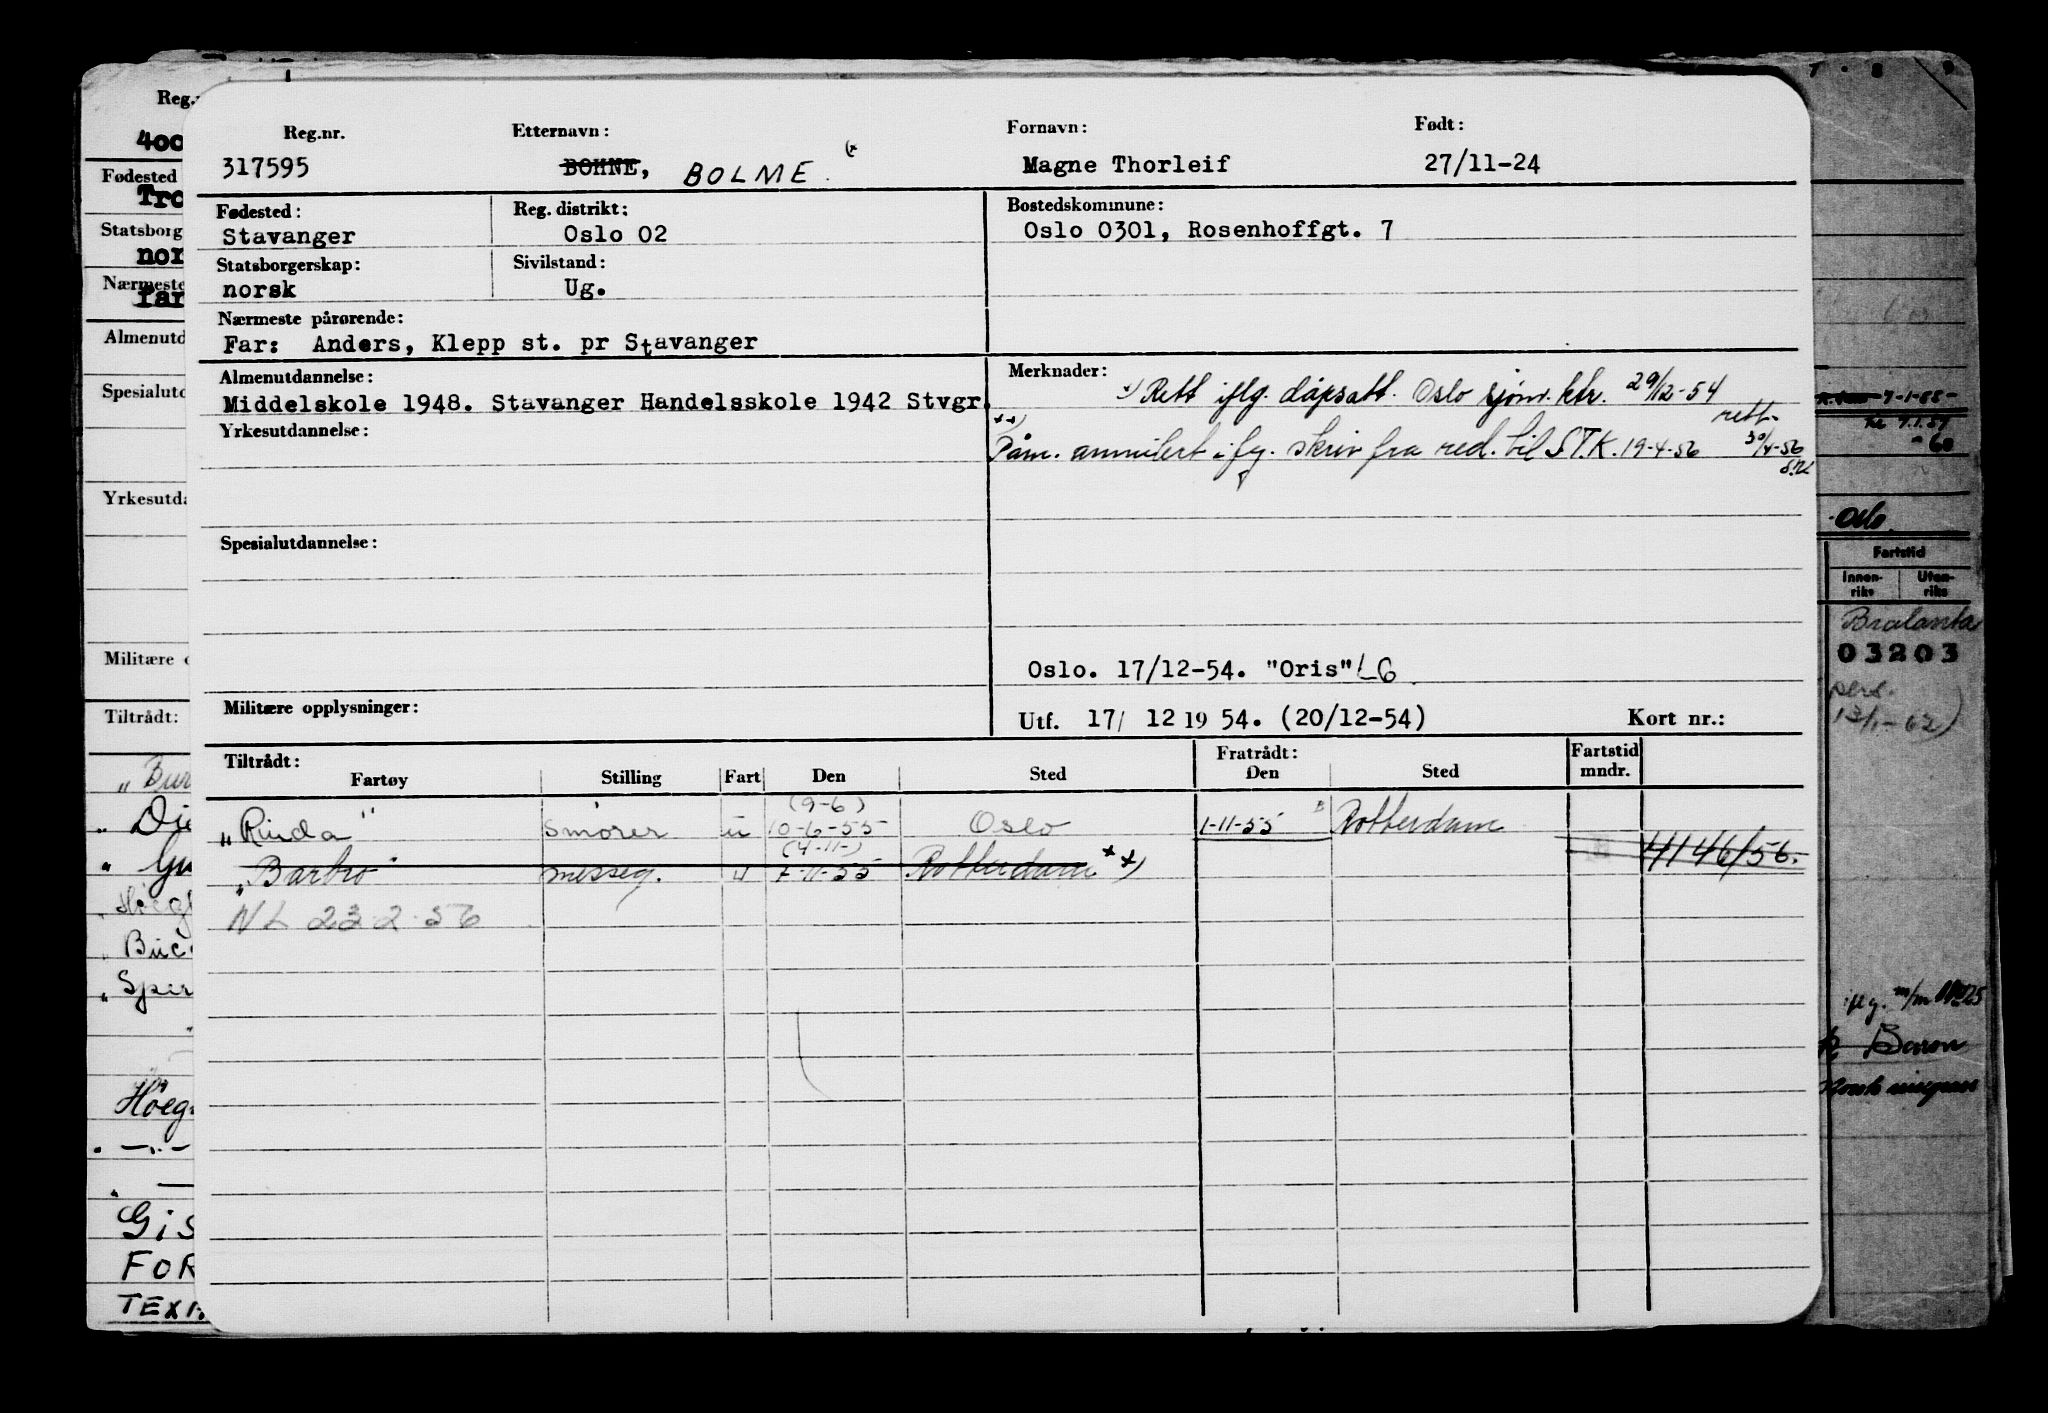 Reg.nr. Etternavn: Fornavn: Født:
317595 BOHNE, BOLME (* Magne Thorleif 27/11-24
Fødested: Reg. distrikt: Bostedskommune:
Stavanger Oslo 02 Oslo 0301, Rosenhoffgt. 7
Statsborgerskap: Sivilstand:
norsk Ug.
Nærmeste pårørende:
Far: Anders, Klepp st. pr Stavanger
Almenutdannelse: Merknader:
Middelskole 1948. Stavanger Handelsskole 1942 Stvgr.
*) Rett iflg. dåpsatt. Oslo sjøm. ktr. 29/12-54
rett.
Yrkesutdannelse:
**) Påm. annullert ifg. skriv fra red. til S.T.K. 19-4-56 30/4-56
Spesialutdannelse:
Oslo. 17/12-54. "Oris" LG
Militære opplysninger:
Utf. 17/ 12 19 54. (20/12-54) Kort nr.:
Tiltrådt: Fratrådt: Fartstid
Fartøy Stilling Fart Den Sted Den Sted mndr.
(9-6)
"Rinda" Smører u 10-6-55 Oslo 1-11-55 Rotterdam
(4-11-)
"Barbro" messeg. u 7-11-55 Rotterdam **) 4146/56.
NL 23 2 56
Reg.
400
Fødested
Tro
Statsborg
nor
Nærmeste
far
Almenutd
Spesialutd
Yrkesutda
Militære
Tiltrådt:
"Bur
Høeg
GIS
FOR
TEX
7-1-88
7.1.57
-60
Oslo.
Fartstid
Innen-riks Uten-riks
Bralanta
03203
pers.
13/1-62)
iflg. m/m
Baron